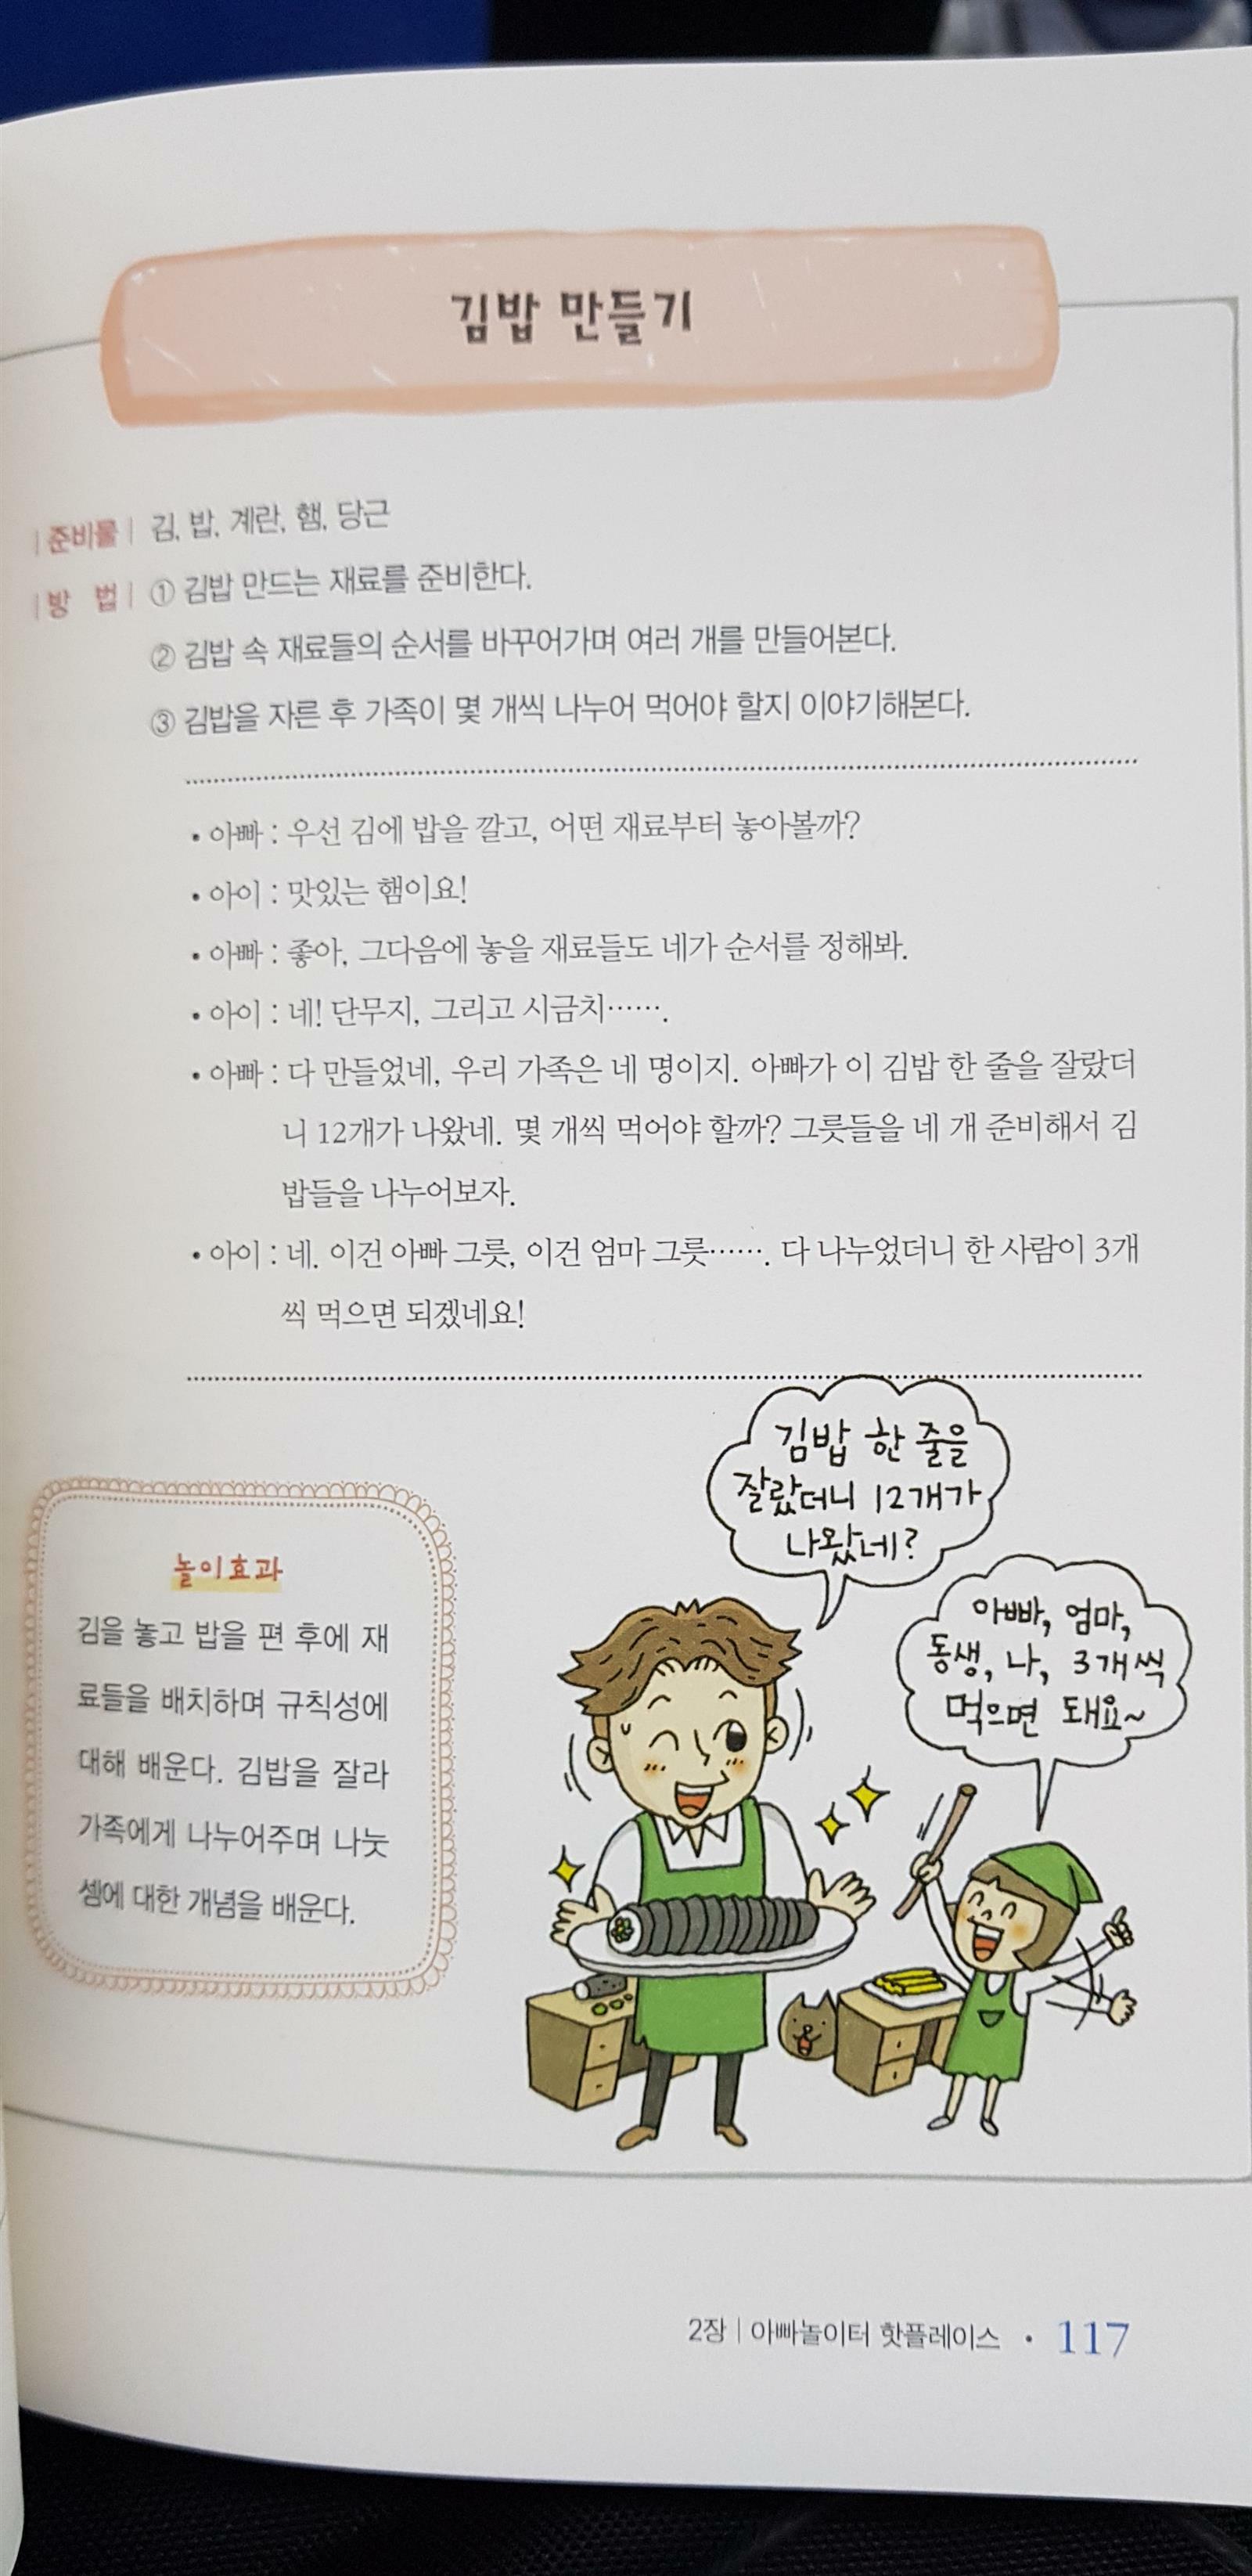 김밥 만들기
|준비물| 김, 밥, 계란, 햄, 당근
|방 법| ① 김밥 만드는 재료를 준비한다.
② 김밥 속 재료들의 순서를 바꾸어가며 여러 개를 만들어본다.
③ 김밥을 자른 후 가족이 몇 개씩 나누어 먹어야 할지 이야기해본다.
• 아빠 : 우선 김에 밥을 깔고, 어떤 재료부터 놓아볼까?
• 아이 : 맛있는 햄이요!
• 아빠 : 좋아, 그다음에 놓을 재료들도 네가 순서를 정해봐.
• 아이 : 네! 단무지, 그리고 시금치…….
• 아빠 : 다 만들었네, 우리 가족은 네 명이지. 아빠가 이 김밥 한 줄을 잘랐더
니 12개가 나왔네. 몇 개씩 먹어야 할까? 그릇들을 네 개 준비해서 김
밥들을 나누어보자.
• 아이 : 네. 이건 아빠 그릇, 이건 엄마 그릇……. 다 나누었더니 한 사람이 3개
씩 먹으면 되겠네요!
김밥 한 줄을
잘랐더니 12개가
나왔네?
아빠, 엄마,
동생, 나, 3개씩
먹으면 돼요~
놀이효과
김을 놓고 밥을 편 후에 재
료들을 배치하며 규칙성에
대해 배운다. 김밥을 잘라
가족에게 나누어주며 나눗
셈에 대한 개념을 배운다.
2장 | 아빠놀이터 핫플레이스 • 117